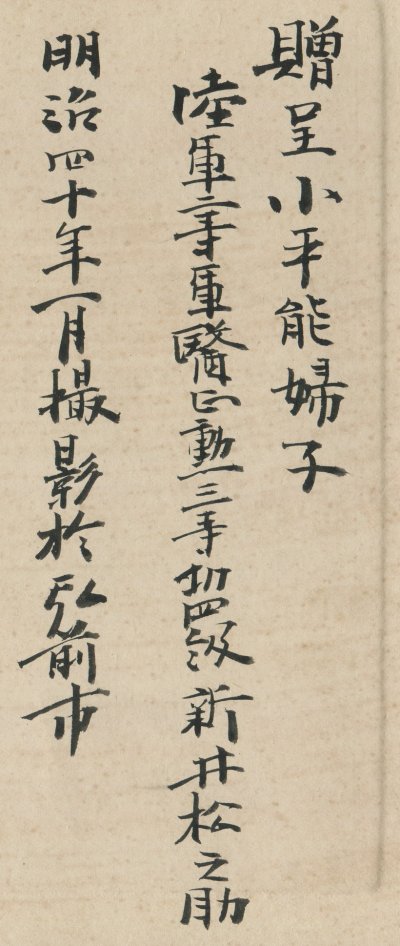 贈呈小平能婦子
陸軍二等軍醫正勲三等功四級新井松之助
明治四十年一月撮影於弘前市